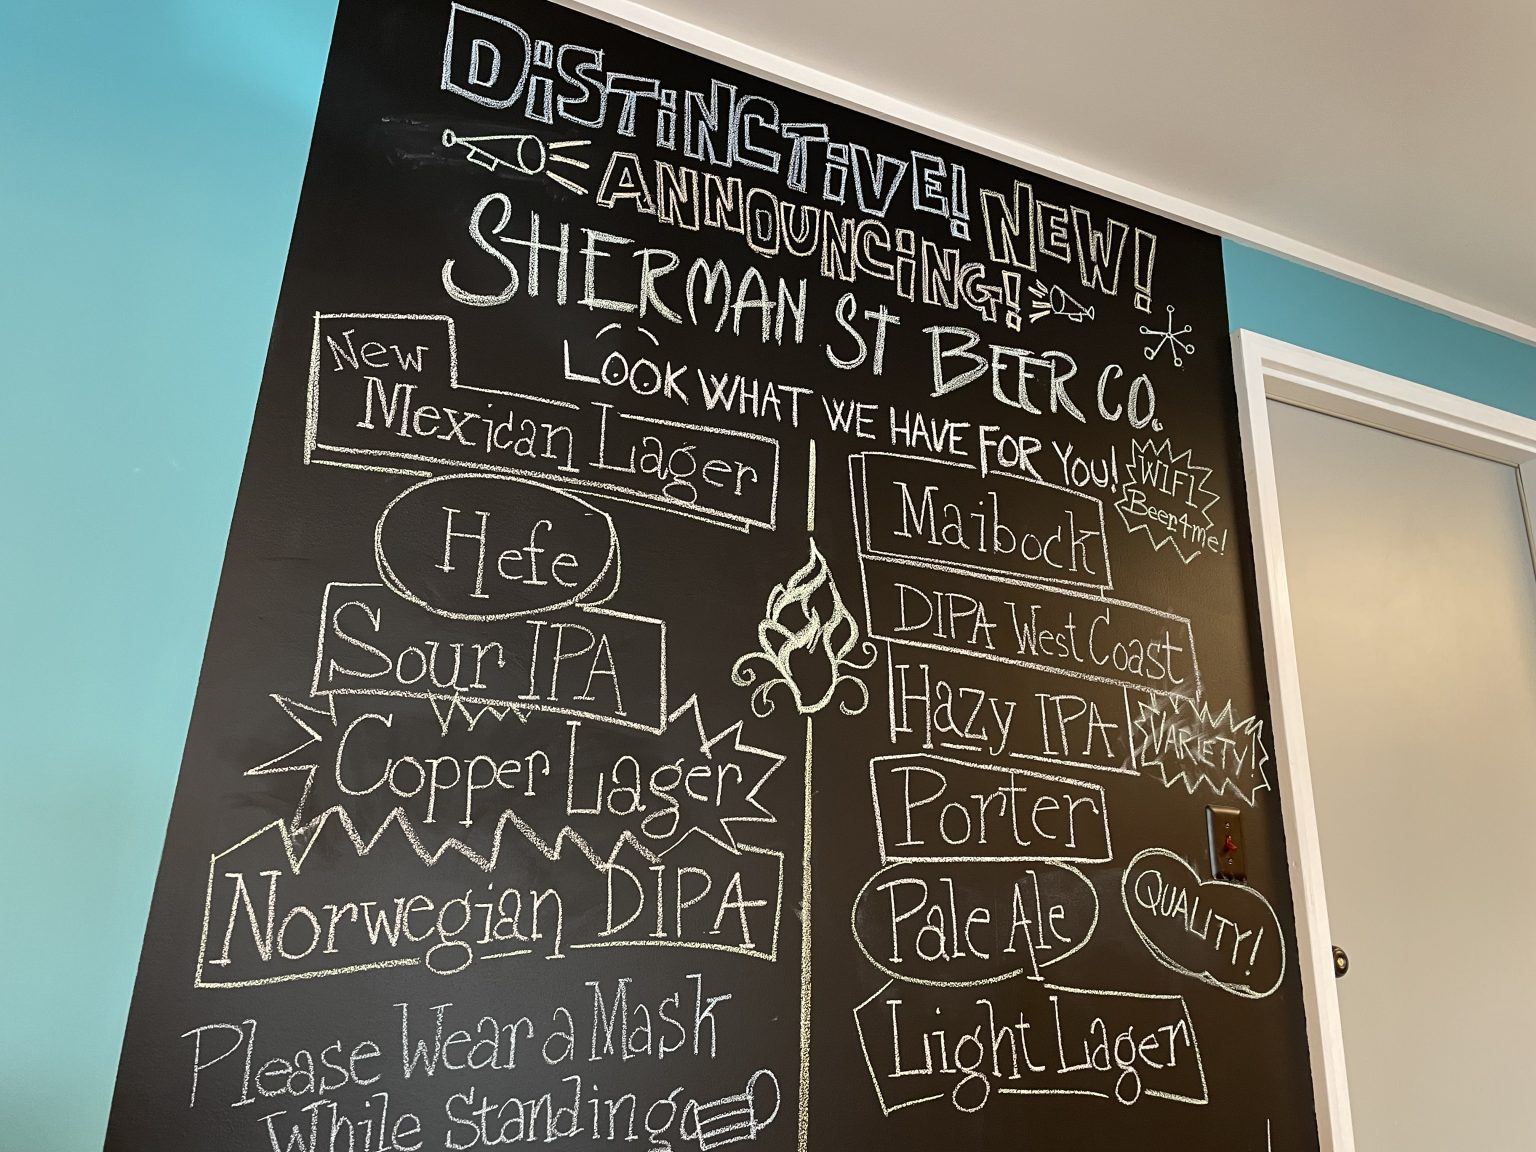 DiSTiNCTiVE! NEW!
ANNOUNCiNG!
SHERMAN ST BEER CO.
LOOK WHAT WE HAVE FOR YOU!
New
Mexican Lager
Hefe
Sour IPA
Copper Lager
Norwegian DIPA
Please Wear a Mask
While Standing
WIFI
Beer4me!
Maibock
DIPA West Coast
Hazy IPA
VARIETY!
Porter
Pale Ale
QUALITY!
Light Lager